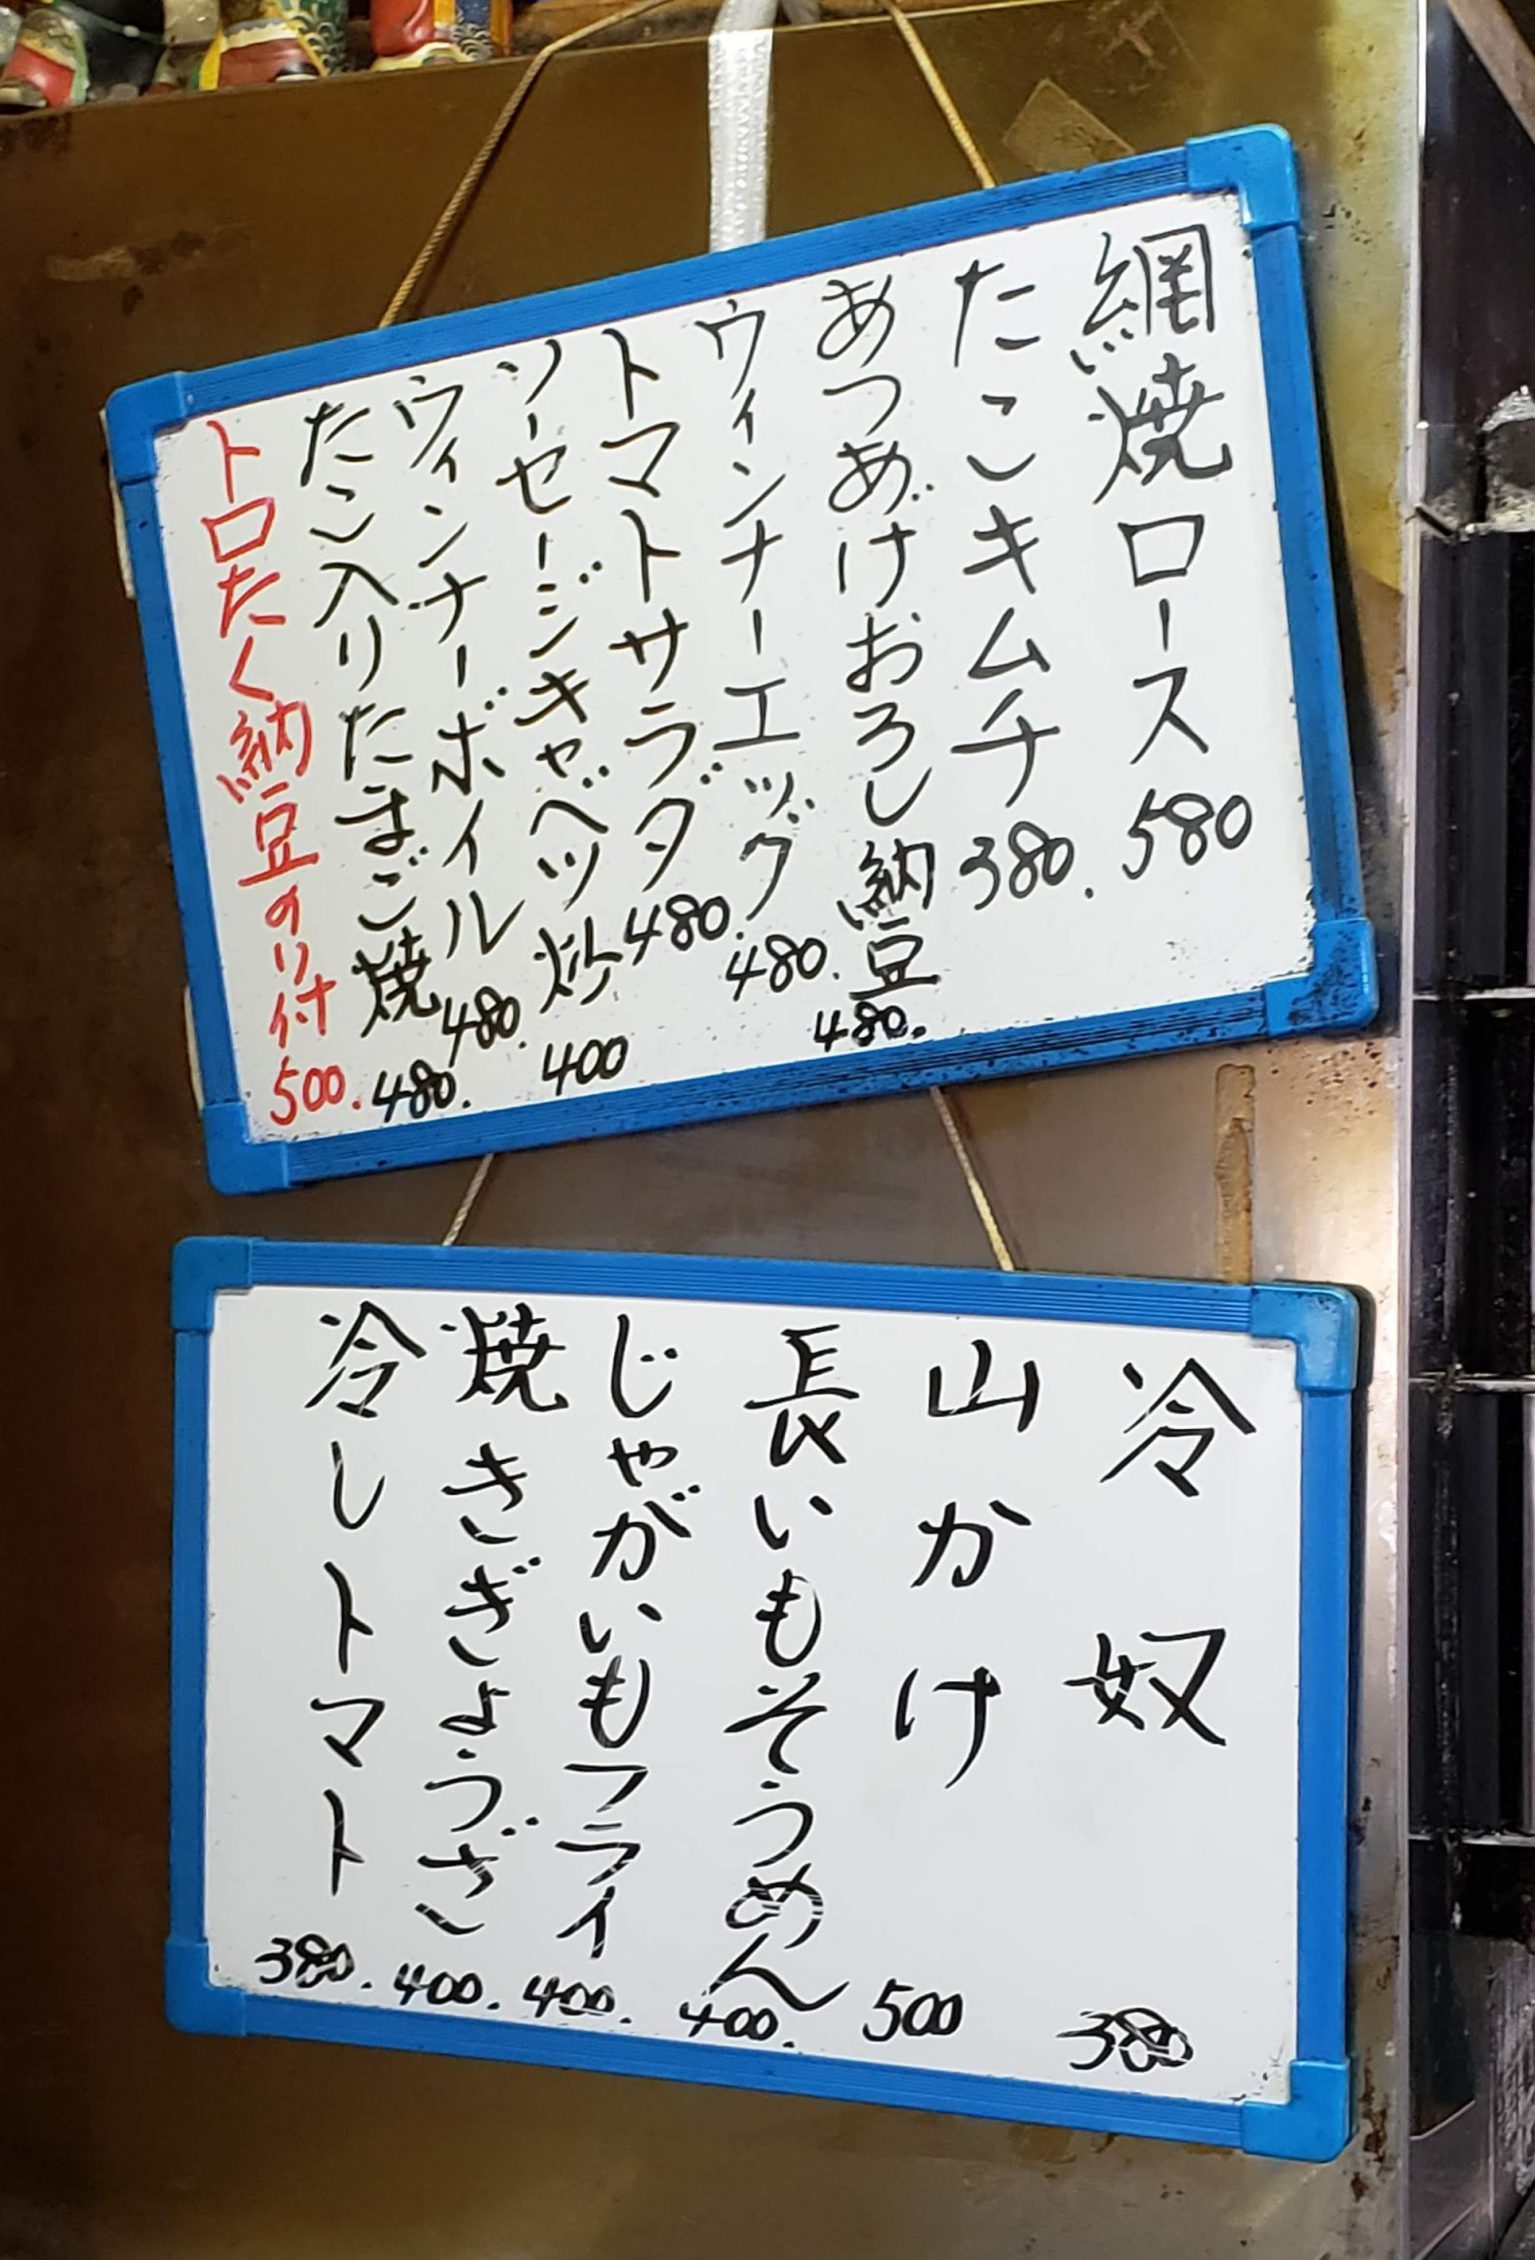 網焼ロース 580
たこキムチ 380.
あつあげおろし納豆 480.
ウィンナーエッグ 480.
トマトサラダ 480.
ソーセージキャベツ炒 400
ウィンナーボイル 480.
たこ入りたまご焼 480.
トロたく納豆のり付 500.
冷奴 380
山かけ 500
長いもそうめん 400.
じゃがいもフライ 400.
焼きぎょうざ 400.
冷しトマト 380.